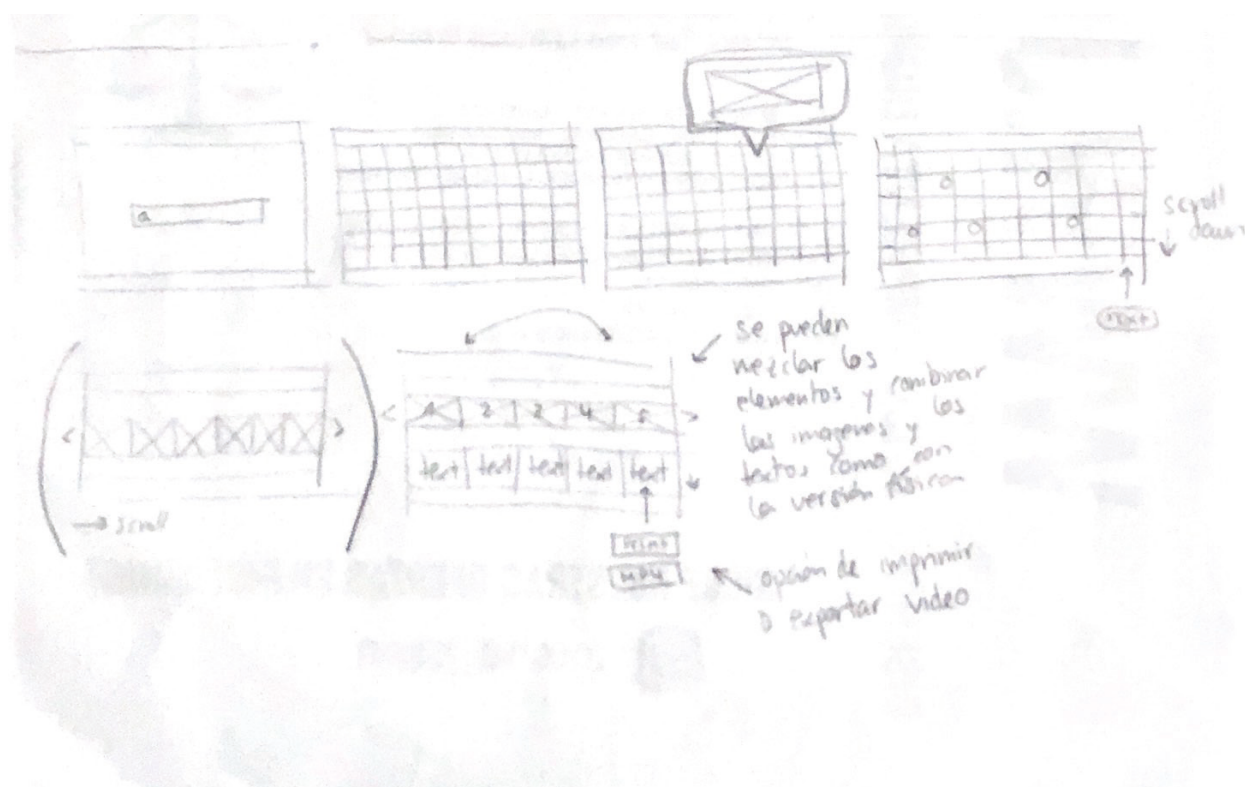 a
scroll
down
next
< >
→ scroll
< 1 2 3 4 5 >
text text text text text
Print
MP4
se pueden
mezclar los
elementos y combinar
las imagenes y los
textos como con
la versión física
opción de imprimir
o exportar video